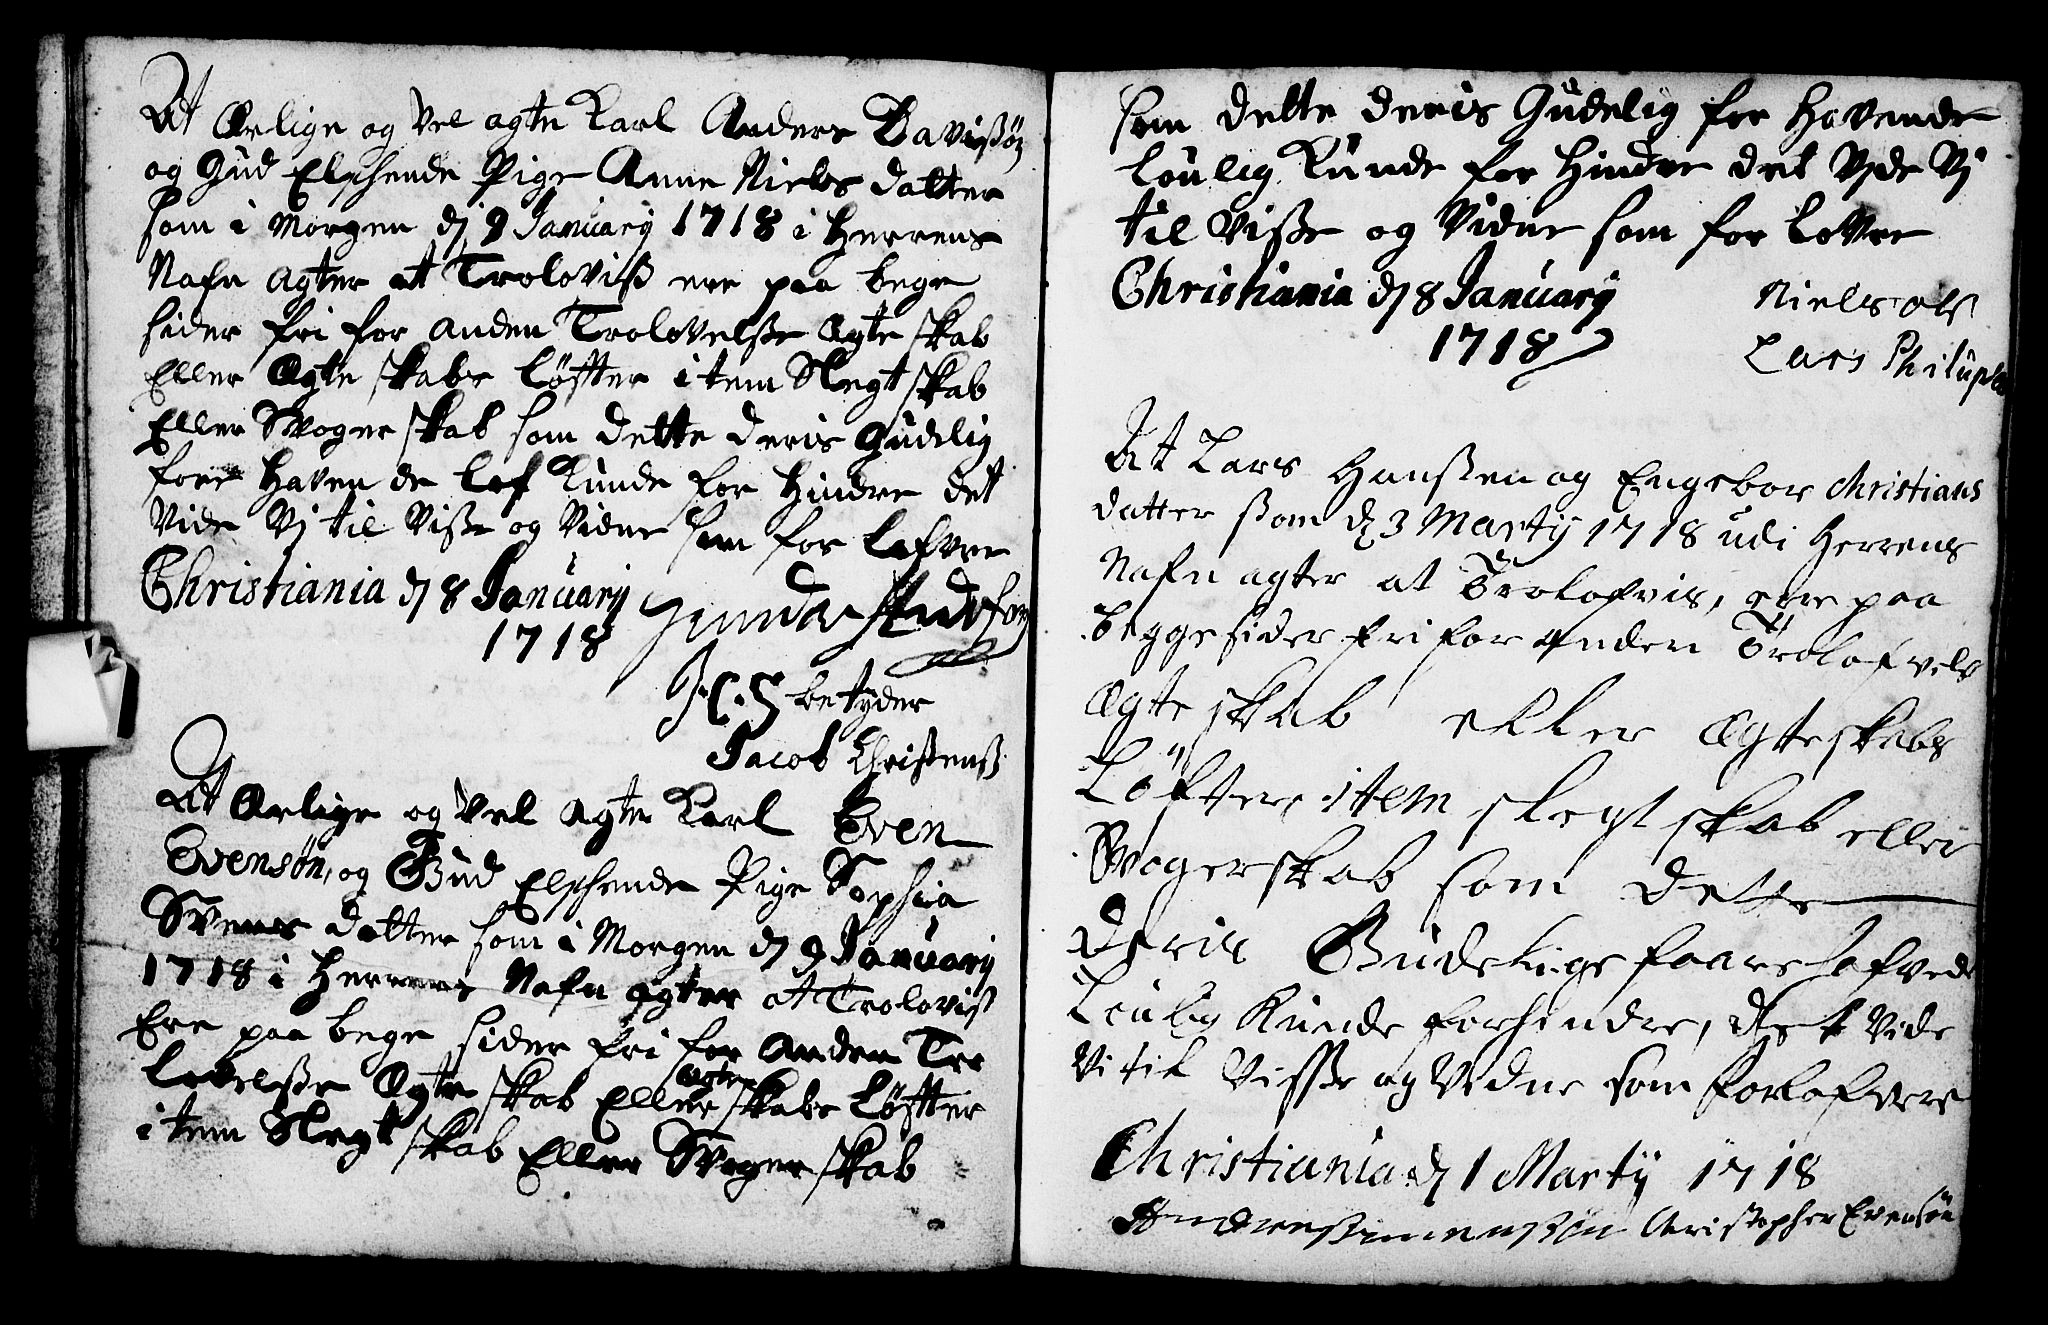 At Ærlige og Vel agte Karl Anders Davisßøn
og Gud Elschende Pige Anne Niels datter
som i Morgen dj 9 January 1718 i Herrens
Nafn agter at Troloviß ere paa bege
sider fri for anden Trolovelße Ægte skab
Eller Ægte skabs Løffter item Slegt skab
Eller Svoger skab som dette deris Gudelig
fore Haven de Lof Kunde for Hindre det
Vide Vj til Viße og Vidne som for Lofver
Christiania dj 8 January
1718
J. C. S betyder
Jacob Christenß
At Ærlige og Vel agte Karl Even
Evensøn, og Gud Elschende Pige Sophia
Svens datter som i Morgen dj 9 January
1718 i Herrens Nafn agter at Troloviß
Ere paa bege sider fri for Anden Tro
lovelße Ægte skab Eller Ægte skabs Løffter
item Slegt skab Eller Svoger skab
som dette deris Gudelig for Havende
Loulig Kunde for Hindre det Vide Vj
til Viße og Vidne som for LoVer
Christiania dj 8 January Niels Ols
1718 Lars Philups
At Lars Hansßen og Engebor Christians
datter ßom dj 3 Martij 1718 udi Herrens
Nafn agter at Trolofvis, ere paa
begge sider fri for anden Trolofvels
Ægte skab eller Ægteskabs
Løfter, item slegt skab eller
Svogerskab som dette
deris Gudelige faarehafvede
Loulig Kunde forhindre, det Vide
Vi til Visße og Vidne som forlofvere
Christiania dj 1 Martij 1718
Andres Simensßøn Christopher Evensøn